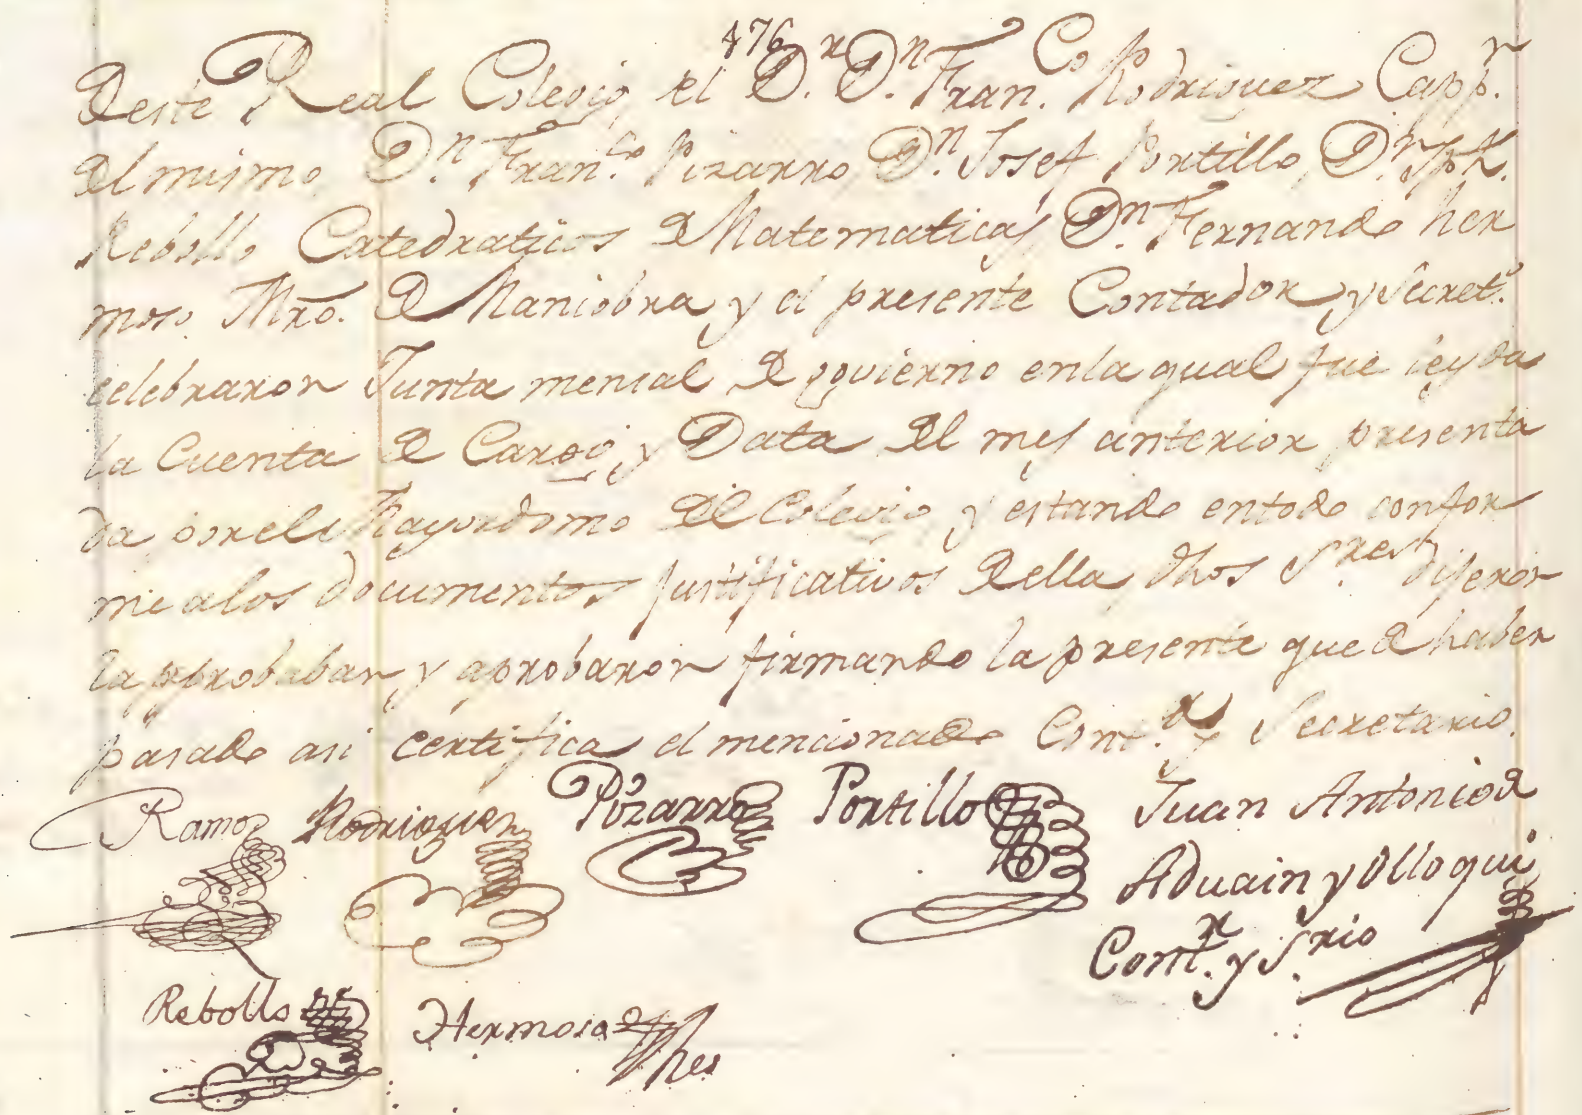 476
Deste Real Colegio, el D.r D.n Fran.co Rodriguez Capp.n
del mismo, D.n Fran.co Pizarro, D.n Josef Portillo, D.n
Rebollo Catedraticos de Matematicas, D.n Fernando her
moso Mro. de Maniobra y el presente Contador y Secret.o
celebraron Junta mensal de govierno enla qual fue leyda
la Cuenta de Cargo, y Data del mes anterior presenta
da porel Mayordomo del Colegio, y estando entodo confor
me alos documentos justificativos della, dhos S.res dijeron
la aprobaban, y aprobaron firmando la presente que de haber
pasado asi certifica el mencionado Cont.r y Secretario.
Ramos Rodriguez Pizarro Portillo Juan Antonio de
Aduain y Olloqui
Cont.r y S.rio
Rebollo Hermoso